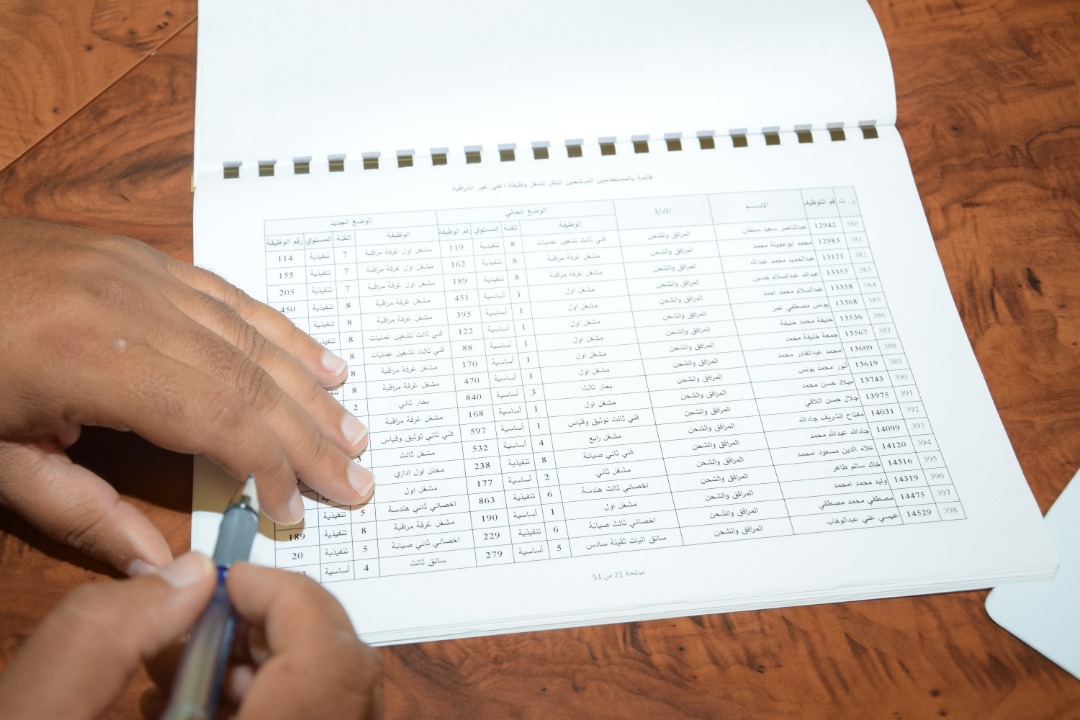 قائمة بالمستخدمين المرشحين للنقل لشغل وظيفة اعلى غير اشرافية
ر. ت رقم الوظيفة الاســـم الادارة الوضع الحالي الوضع الجديد
الوظيفة الفئة المستوي رقم الوظيفة الوظيفة الفئة المستوي رقم الوظيفة
380 12942 عبدالناصر سعيد سلطان المرافق والشحن فني ثالث تشغيل عمليات 8 تنفيذية 119 مشغل اول غرفة مراقبة 7 تنفيذية 114
381 12983 محمد ابوعجينة محمد المرافق والشحن مشغل غرفة مراقبة 8 تنفيذية 162 مشغل اول غرفة مراقبة 7 تنفيذية 155
382 13121 عبدالحميد محمد عبدالله المرافق والشحن مشغل غرفة مراقبة 8 تنفيذية 189 مشغل اول غرفة مراقبة 7 تنفيذية 205
383 13355 عبدالله عبدالسلام حسين المرافق والشحن مشغل اول 1 أساسية 451 مشغل غرفة مراقبة 8 تنفيذية 450
384 13358 عبدالسلام محمد احمد المرافق والشحن مشغل اول 1 أساسية 395 مشغل غرفة مراقبة 8 تنفيذية
385 13368 يونس مصطفي عمر المرافق والشحن مشغل اول 1 أساسية 122 فني ثالث تشغيل عمليات 8
386 13536 خليفة محمد خليفة المرافق والشحن مشغل اول 1 أساسية 88 فني ثالث تشغيل عمليات 8
387 13567 جمعة خليفة محمد المرافق والشحن مشغل اول 1 أساسية 170 مشغل غرفة مراقبة 8
388 13609 محمد عبدالقادر محمد المرافق والشحن مشغل اول 1 أساسية 470 مشغل غرفة مراقبة 8
389 13619 انور محمد يونس المرافق والشحن بحار ثالث 3 أساسية 840 بحار ثاني 2
390 13743 ميلاد حسن محمد المرافق والشحن مشغل اول 1 أساسية 168 مشغل غرفة مراقبة
391 13975 جلال حسن اللافي المرافق والشحن فني ثالث توثيق وقياس 597 فني ثاني توثيق وقياس
392 14031 مفتاح الشريف جادالله المرافق والشحن مشغل رابع 4 أساسية 532 مشغل ثالث
393 14099 جادالله عبدالله محمد المرافق والشحن فني ثاني صيانة 8 تنفيذية 238
394 14120 علاء الدين مسعود امحمد المرافق والشحن مشغل ثاني 2 أساسية 177 مشغل اول
395 14316 خالد سالم طاهر المرافق والشحن اخصائي ثالث هندسة 6 تنفيذية 863 اخصائي ثاني هندسة 5 تنفيذية
396 14319 وليد محمد امحمد المرافق والشحن مشغل اول 1 أساسية 190 مشغل غرفة مراقبة 8 تنفيذية 189
397 14475 مصطفي محمد مصطفي المرافق والشحن اخصائي ثالث صيانة 6 تنفيذية 229 اخصائي ثاني صيانة 5 تنفيذية 20
398 14529 عيسي علي عبدالوهاب المرافق والشحن سائق اليات ثقيلة سادس 5 أساسية 279 سائق ثالث 4 أساسية
صفحة 21 من 51